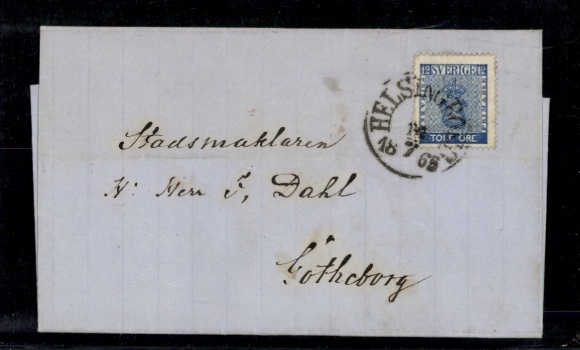 12 SVERIGE 12
TOLF ÖRE
HELSINGBORG
14
18 7 65
Stadsmäklaren
H: Herr F, Dahl
Götheborg